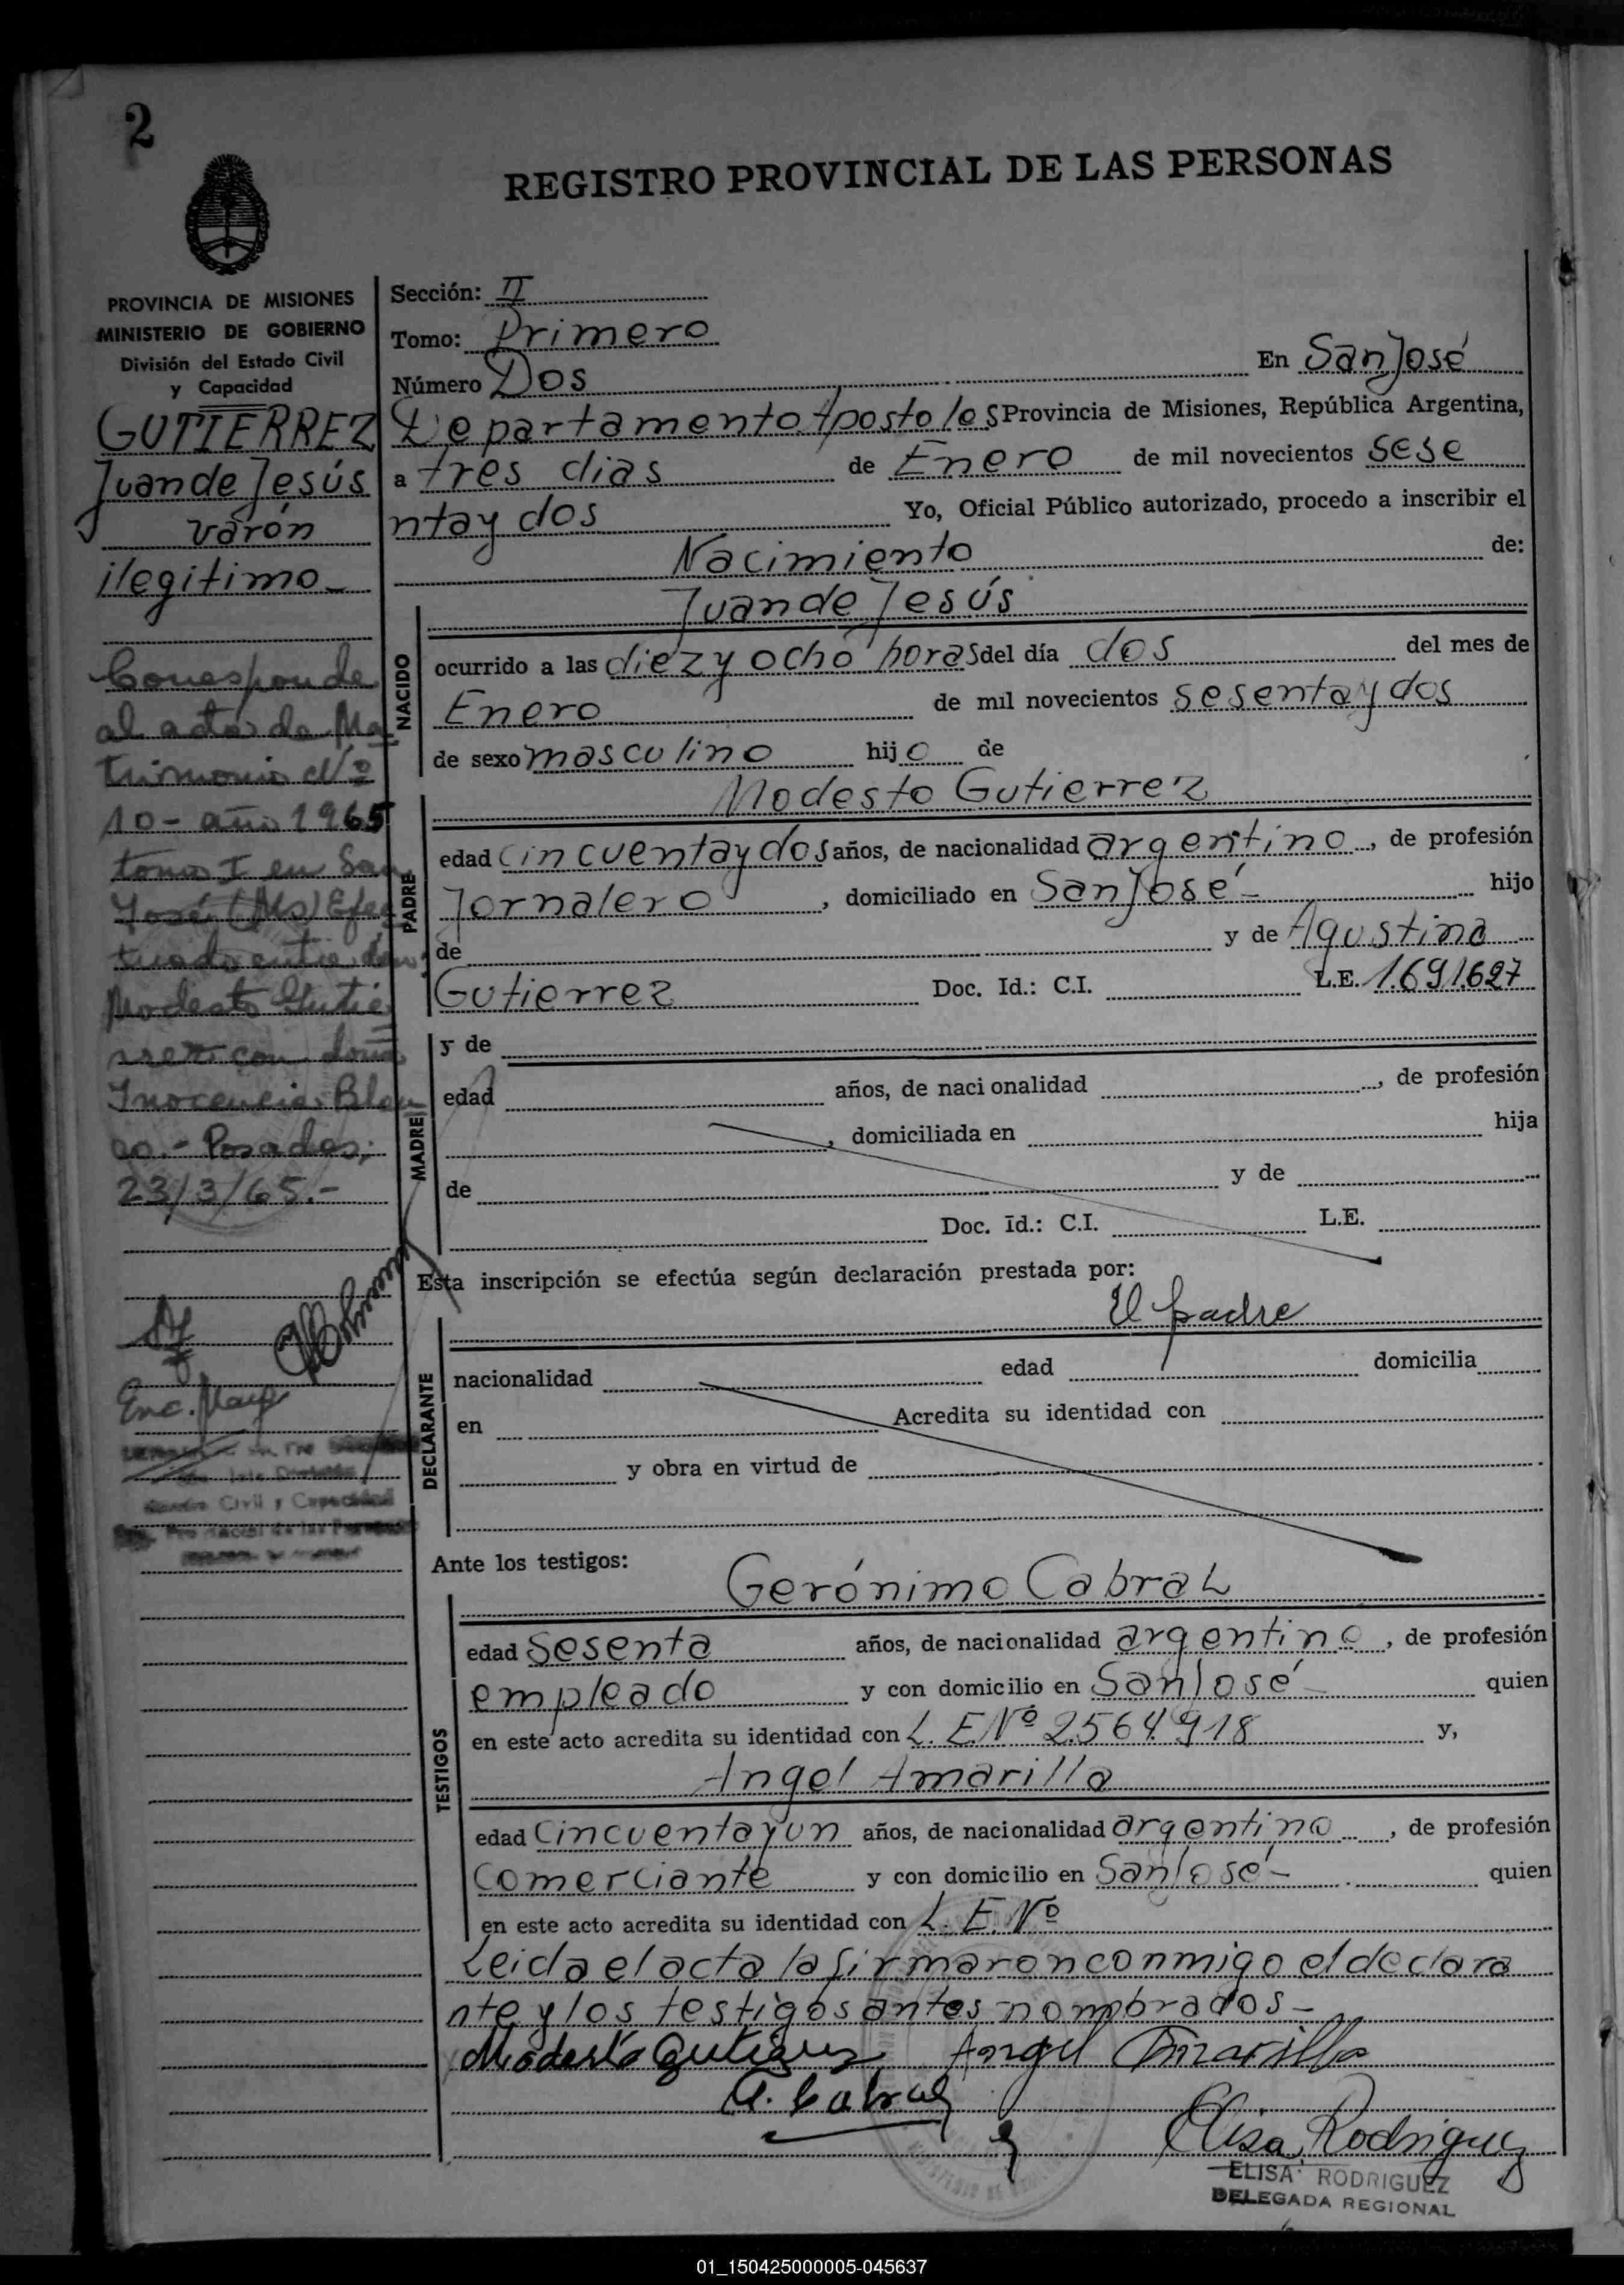 2
REGISTRO PROVINCIAL DE LAS PERSONAS
PROVINCIA DE MISIONES
MINISTERIO DE GOBIERNO
División del Estado Civil
y Capacidad
GUTIERREZ
Juan de Jesús
varón
ilegitimo-
Corresponde
al acta de Ma
trimonio Nº
10- año 1965
tomo I en San
José (Ms) Efec
tuado entre don
Modesto Gutié
rrez con doña
Inocencia Blan
co.- Posadas,
23/3/65.-
Enc. 
Civil y Capacidad
Sección: II
Tomo: Primero
Número Dos En San José
Departamento Apostoles Provincia de Misiones, República Argentina,
a tres dias de Enero de mil novecientos sese
nta y dos Yo, Oficial Público autorizado, procedo a inscribir el
Nacimiento de:
Juan de Jesús
NACIDO
ocurrido a las diez y ocho horas del día dos del mes de
Enero de mil novecientos sesenta y dos
de sexo masculino hijo de
Modesto Gutierrez
PADRE
edad cincuenta y dos años, de nacionalidad argentino, de profesión
Jornalero, domiciliado en San José- hijo
de y de Agustina
Gutierrez Doc. Id.: C.I. L.E. 1.691.627
MADRE
y de
edad años, de nacionalidad , de profesión
, domiciliada en hija
de y de
Doc. Id.: C.I. L.E.
Esta inscripción se efectúa según declaración prestada por:
El padre
DECLARANTE
nacionalidad edad domicilia
en Acredita su identidad con
y obra en virtud de
Ante los testigos:
Gerónimo Cabral
TESTIGOS
edad Sesenta años, de nacionalidad argentino, de profesión
empleado y con domicilio en San José- quien
en este acto acredita su identidad con L. E. Nº 2.564.918 y,
Angel Amarilla
edad Cincuenta y un años, de nacionalidad argentino, de profesión
Comerciante y con domicilio en San José- quien
en este acto acredita su identidad con L. E. Nº
Leida el acta la firmaron conmigo el declara
nte y los testigos antes nombrados-
Modesto Gutierrez Angel Amarilla
G. Cabral
Elisa Rodriguez
ELISA RODRIGUEZ
DELEGADA REGIONAL
01_150425000005-045637